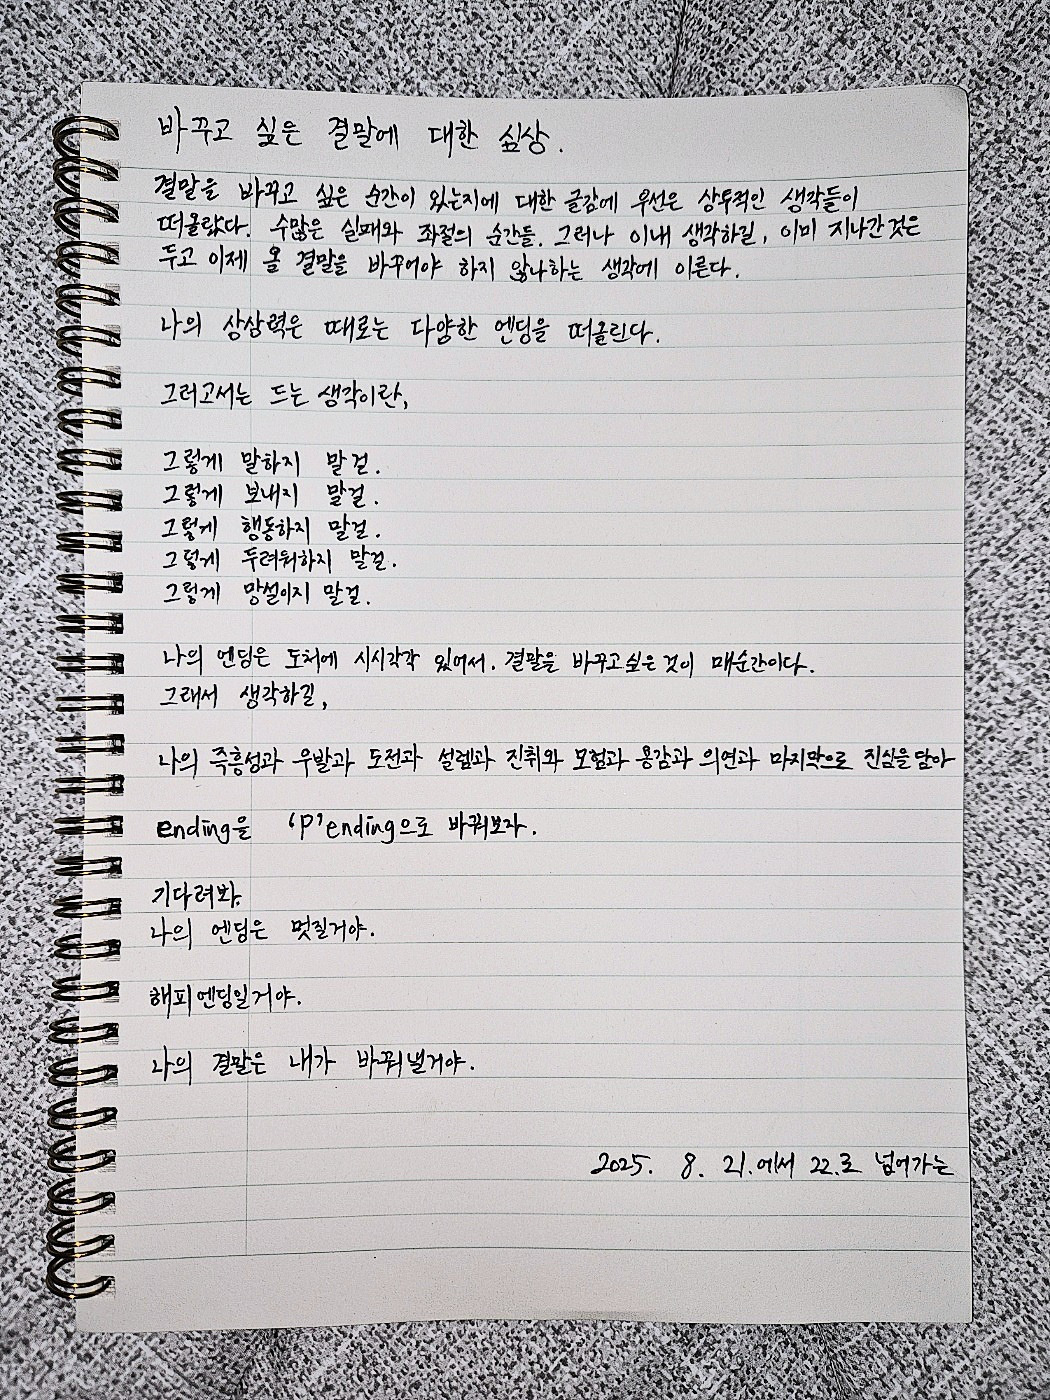 바꾸고 싶은 결말에 대한 심상.
결말을 바꾸고 싶은 순간이 있는지에 대한 글감에 우선은 상투적인 생각들이
떠올랐다. 수많은 실패와 좌절의 순간들. 그러나 이내 생각하길, 이미 지나간것은
두고 이제 올 결말을 바꾸어야 하지 않나하는 생각에 이른다.
나의 상상력은 때로는 다양한 엔딩을 떠올린다.
그러고서는 드는 생각이란,
그렇게 말하지 말걸.
그렇게 보내지 말걸.
그렇게 행동하지 말걸.
그렇게 두려워하지 말걸.
그렇게 망설이지 말걸.
나의 엔딩은 도처에 시시각각 있어서. 결말을 바꾸고싶은것이 매순간이다.
그래서 생각하길,
나의 즉흥성과 우발과 도전과 설렘과 진취와 모험과 용감과 의연과 마지막으로 진심을담아
ending을 'P'ending으로 바꿔보자.
기다려봐.
나의 엔딩은 멋질거야.
해피엔딩일거야.
나의 결말은 내가 바꿔낼거야.
2025. 8. 21.에서 22.로 넘어가는